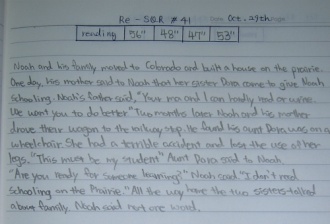 Re - SQR # 41 Oct. 29th
reading 56" 48" 47" 53"
Noah and his family moved to Colorado and built a house on the prairie.
One day, his mother said to Noah that her sister Dora come to give Noah
schooling. Noah's father said, "Your ma and I can hardly read or write.
We want you to do better." Two months later Noah and his mother
drove their wagon to the railway stop. He found his aunt Dora was on a
wheelchair. She had a terrible accident and lost the use of her
legs. "This must be my student" Aunt Dora said to Noah.
"Are you ready for some learning?" Noah said "I don't need
schooling on the Prairie." All the way home the two sisters talked
about family. Noah said not one word.